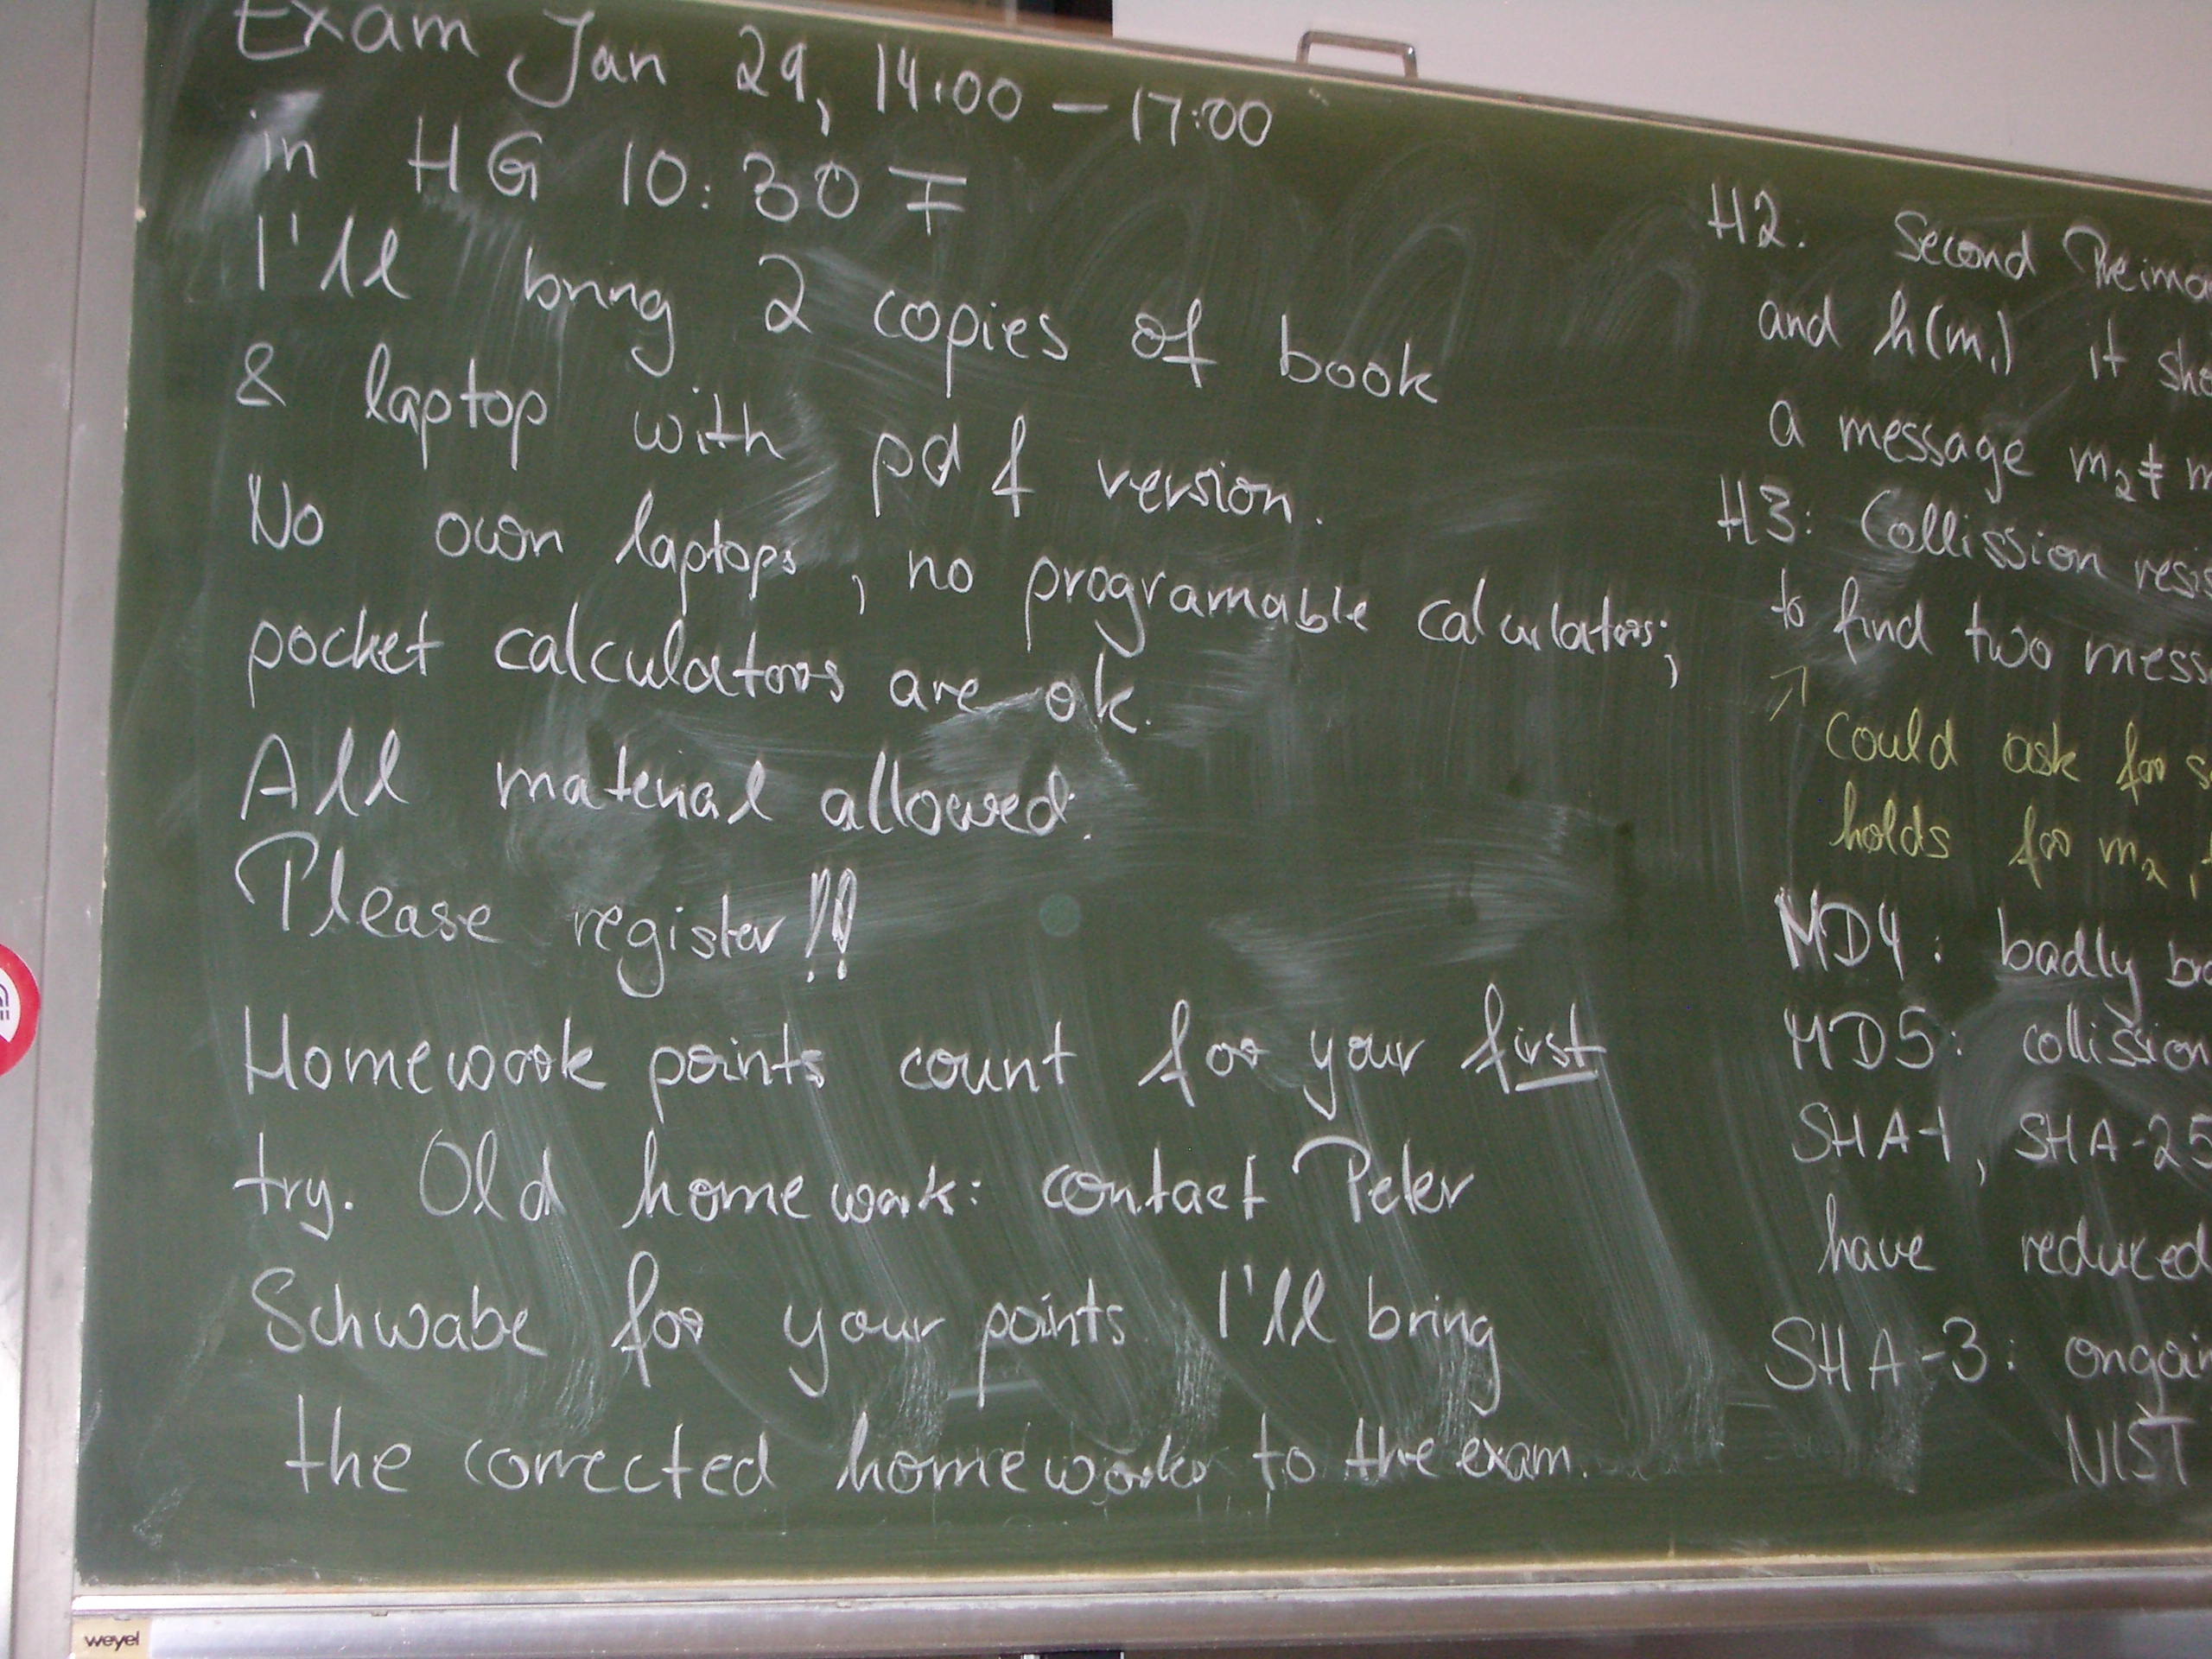 Exam Jan 29, 14:00 – 17:00
in HG 10:30 F
I'll bring 2 copies of book
& laptop with pdf version.
No own laptops, no programable calculators;
pocket calculators are ok.
All material allowed.
Please register!!
Homework points count for your first
try. Old homework: contact Peter
Schwabe for your points. I'll bring
the corrected homeworks to the exam.
H2: Second Preima
and h(m₁) it sho
a message m₂ ≠ m
H3: Collission resis
to find two mess
could ask for s
holds for m₂,
MD4: badly bro
MD5: collission
SHA-1, SHA-25
have reduced
SHA-3: ongoin
NIST
weyel